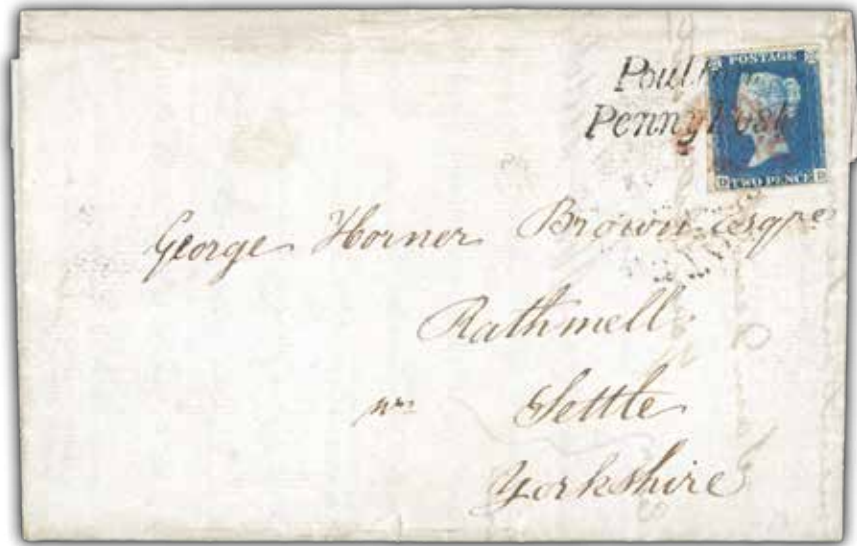 Poulton
Penny Post
POSTAGE
D TWO PENCE D
George Horner Brown esqre
Rathmell
nr Settle
Yorkshire